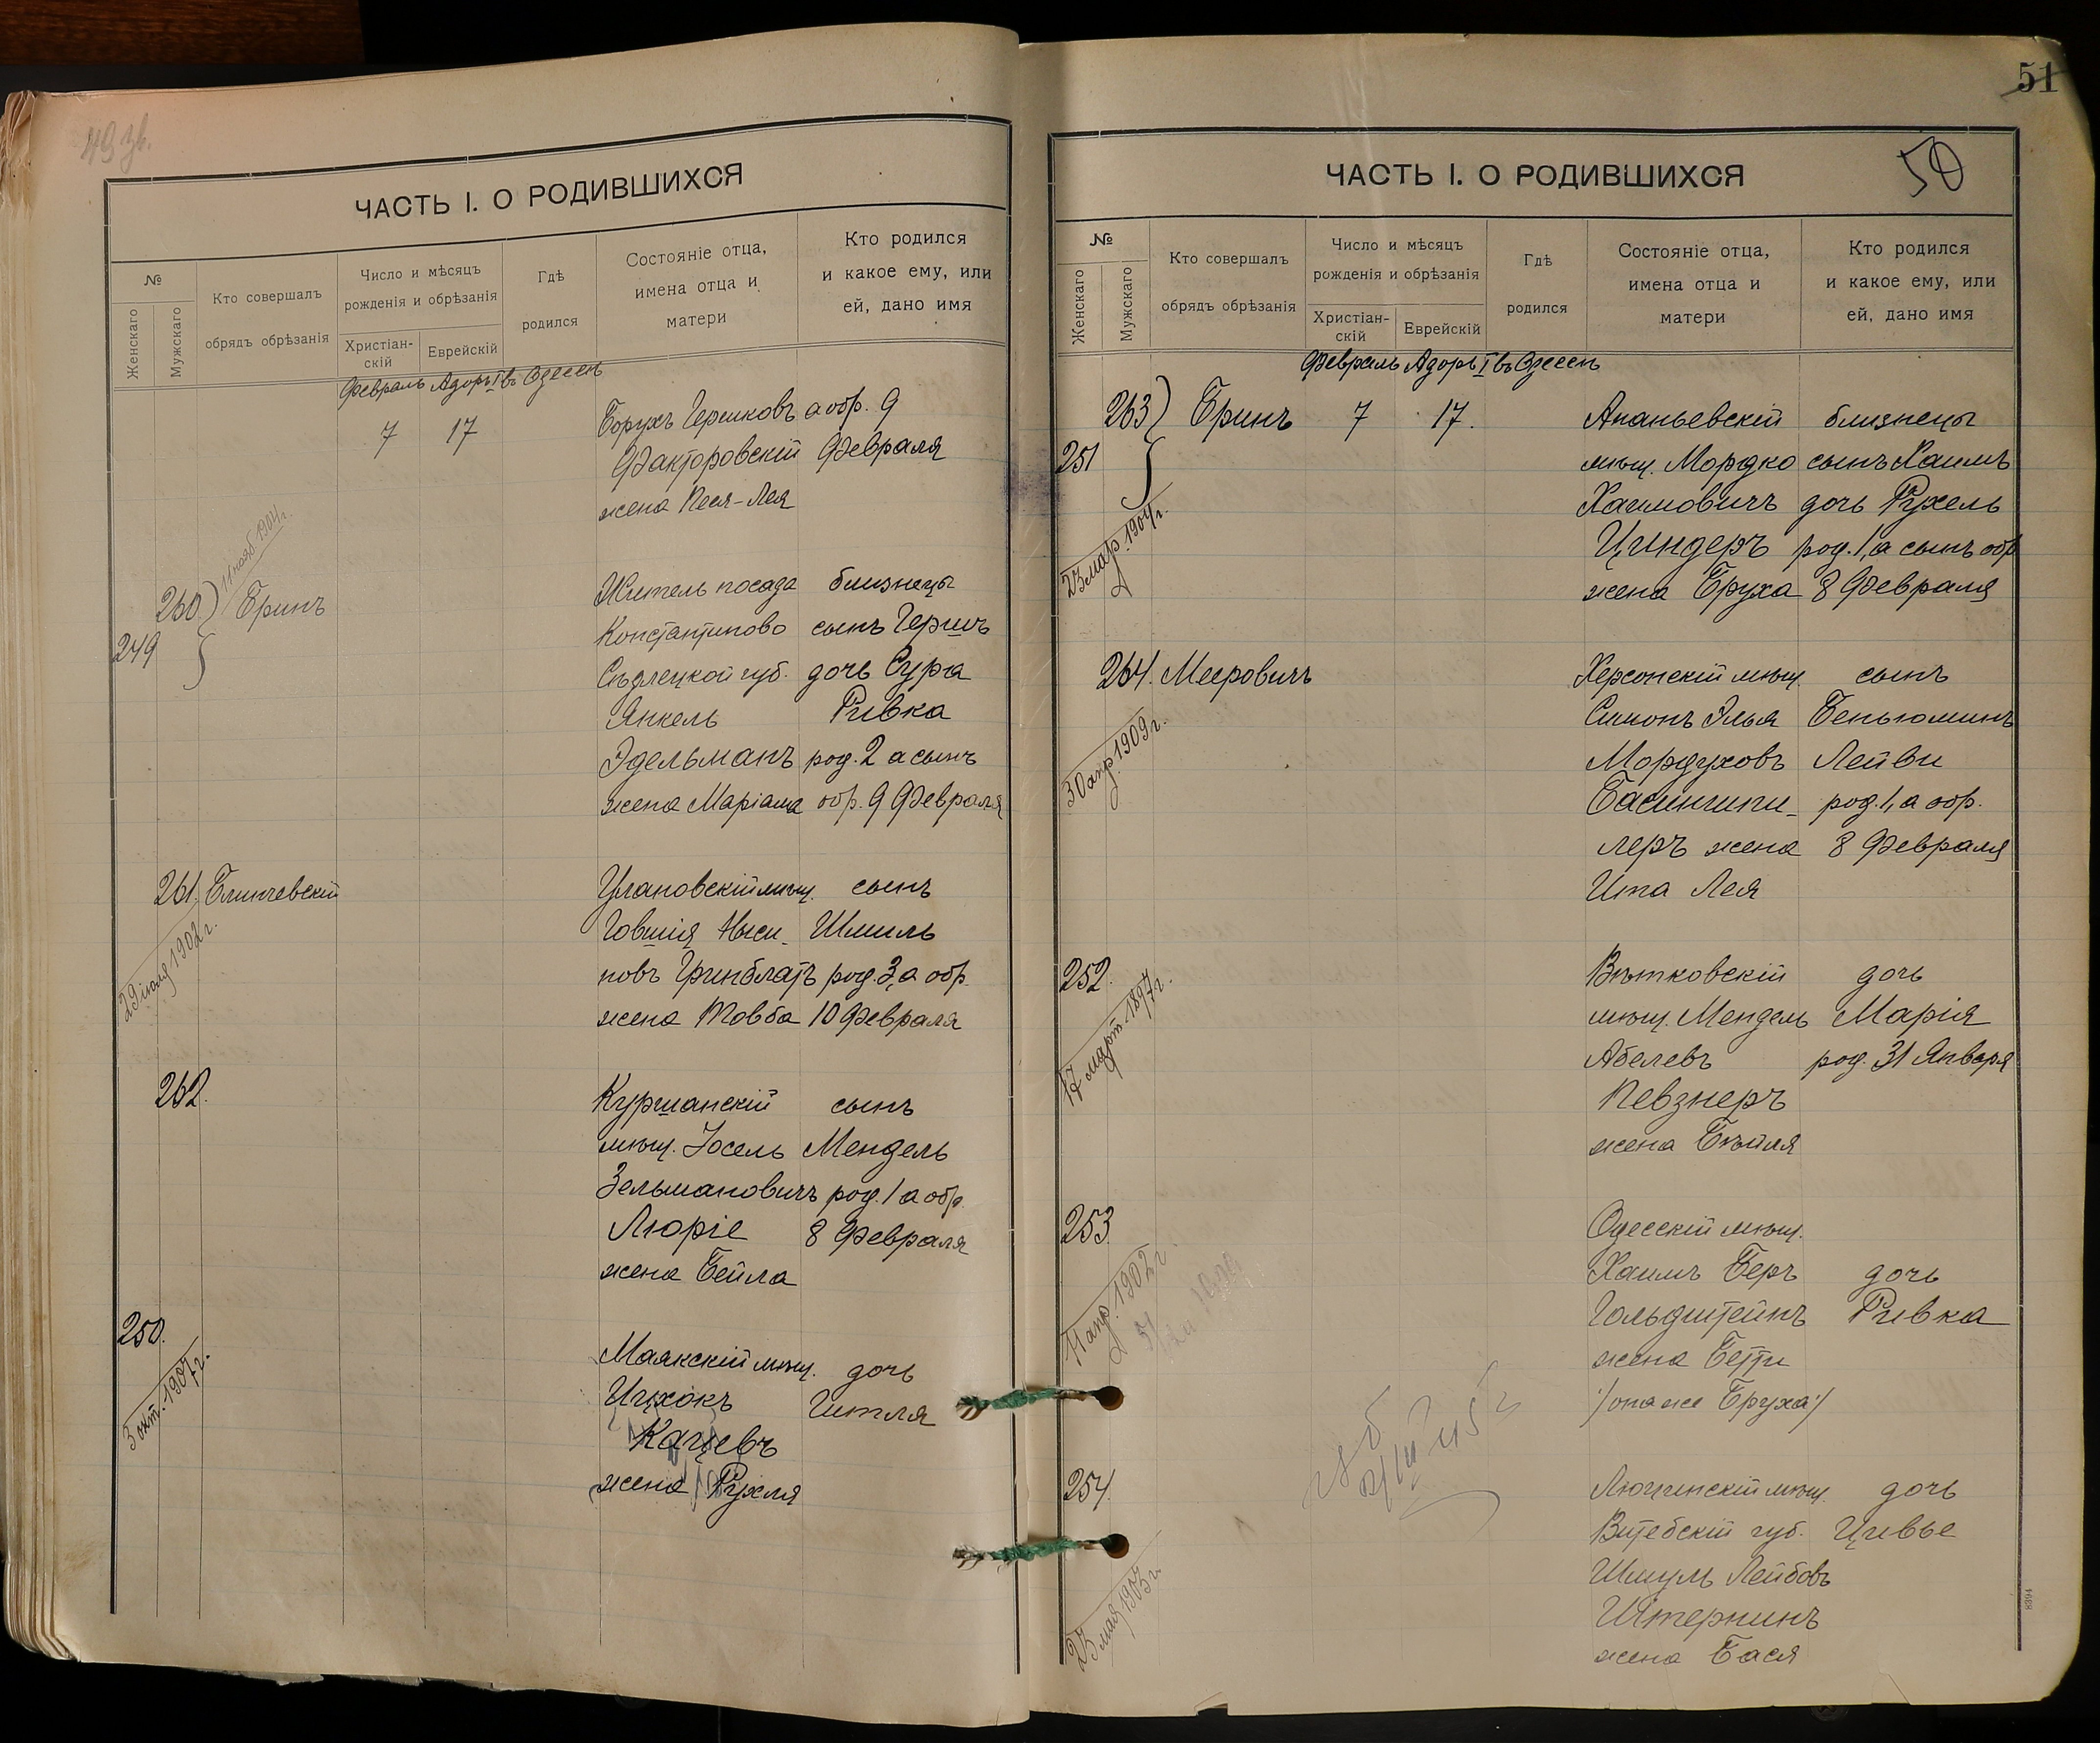 49 зв.
ЧАСТЬ I. О РОДИВШИХСЯ
№
Женскаго
Мужскаго
Кто совершалъ
обрядъ обрѣзанія
Число и мѣсяцъ
рожденія и обрѣзанія
Христіан-
скій
Еврейскій
Гдѣ
родился
Состояніе отца,
имена отца и
матери
Кто родился
и какое ему, или
ей, дано имя
Февраль Адоръ I въ Одессѣ
7 17 Борухъ Гершковъ а обр. 9
Факторовскій Февраля
жена Песя-Лея
11 нояб. 1904 г.
260 Бринъ Житель посада близнецы
249 Константиново сынъ Гершъ
Сѣдлецкой губ. дочь Сура
Янкель Ривка
Эдельманъ род. 2 а сынъ
жена Маріама обр. 9 Февраля
261. Блинчевскій Улановскій мѣщ. сынъ
29 іюля 1902 г.
Іовшія Ныси- Шмиль
новъ Гринблатъ род. 3, а обр.
жена Товба 10 Февраля
262. Куршанскій сынъ
мѣщ. Іосель Мендель
Зельмановичъ род. 1 а обр.
Люріе 8 Февраля
жена Бейла
250. Маякскій мѣщ. дочь
3 окт. 1907 г.
Ицхокъ Гитля
Кацевъ
жена Рухля
51
50
ЧАСТЬ I. О РОДИВШИХСЯ
№
Женскаго
Мужскаго
Кто совершалъ
обрядъ обрѣзанія
Число и мѣсяцъ
рожденія и обрѣзанія
Христіан-
скій
Еврейскій
Гдѣ
родился
Состояніе отца,
имена отца и
матери
Кто родился
и какое ему, или
ей, дано имя
Февраль Адоръ I въ Одессѣ
263 Бринъ 7 17. Ананьевскій близнецы
251 мѣщ. Мордко сынъ Хаимъ
23 мар. 1904 г.
Хаимовичъ дочь Рухель
Циндеръ род. 1, а сынъ обр
жена Бруха 8 Февраля
264. Мееровичъ Херсонскій мѣщ. сынъ
30 апр. 1909 г.
Симонъ Элья Беньюминъ
Мордуховъ Лейви
Басинкипи- род. 1, а обр.
леръ жена 8 Февраля
Ита Лея
252. Вѣтковскій дочь
17 март. 1897 г.
мѣщ. Мендель Марія
Абелевъ род. 31 Января
Певзнеръ
жена Бѣйля
253. Одесскій мѣщ.
11 апр. 1902 г.
Хаимъ Беръ дочь
Гольдштейнъ Ривка
жена Бетти
:/она же Бруха:/
254. Люцинскій мѣщ. дочь
23 мая 1903 г.
Витебскій губ. Цивье
Шмуль Лейбовъ
Штернинъ
жена Бася
8394